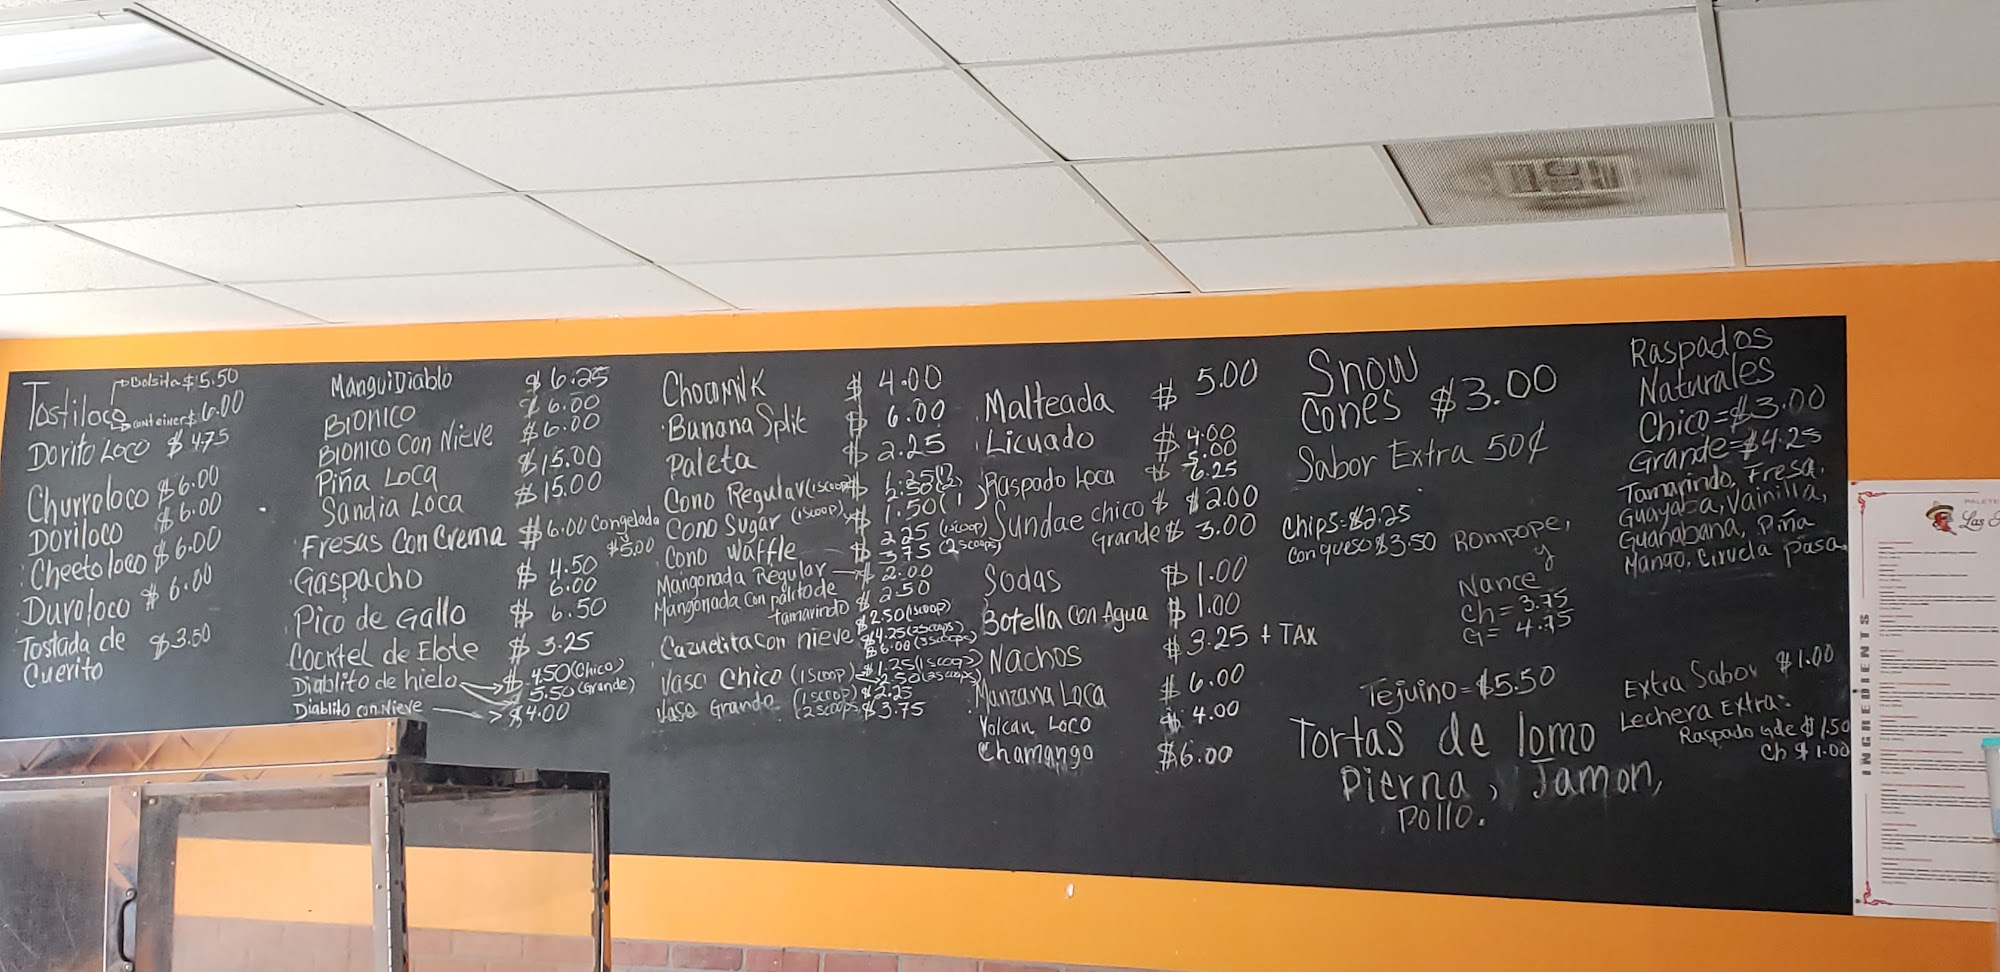 Tostiloco Bolsita $5.50
container $6.00
Dorito Loco $4.75
Churroloco $6.00
Doriloco $6.00
Cheeto loco $6.00
Duroloco $6.00
Tostada de $3.50
Cuerito
ManguiDiablo $6.25
Bionico $6.00
Bionico Con Nieve $6.00
Piña Loca $15.00
Sandia Loca $15.00
Fresas Con Crema $6.00 Congelada
$5.00
Gaspacho $4.50
6.00
Pico de Gallo $6.50
Cocktel de Elote $3.25
Diablito de hielo $4.50 (Chico)
5.50 (Grande)
Diablito con Nieve $4.00
Chocomilk $4.00
Banana Split $6.00
Paleta $2.25
Cono Regular (1scoop) $1.25(1)
2.50(2)
Cono Sugar (1scoop) $1.50(1
Cono Waffle 2.25 (1scoop)
$3.75 (2scoops)
Mangonada Regular $2.00
Mangonada con palito de
tamarindo $2.50
Cazuelita con nieve $2.50 (1scoop)
$4.25 (2scoops)
$6.00 (3scoops)
Vaso Chico (1scoop) $1.25 (1scoop)
2.50 (2scoops)
Vaso Grande (1scoop) $2.25
(2scoops) $3.75
Malteada $5.00
Licuado $4.00
5.00
Raspado Loca $6.25
Sundae chico $ $2.00
Grande $ 3.00
Sodas $1.00
Botella con Agua $1.00
Nachos $3.25 + TAX
Manzana Loca $6.00
Volcan Loco $4.00
Chamango $6.00
Snow
Cones $3.00
Sabor Extra 50¢
Chips=$2.25
con queso $3.50
Rompope,
y
Nance
Ch= 3.75
G= 4.75
Tejuino=$5.50
Tortas de lomo
Pierna, Jamon,
Pollo.
Raspados
Naturales
Chico=$3.00
Grande=$4.25
Tamarindo, Fresa,
Guayaba, Vainilla,
Guanabana, Piña
Mango, Ciruela pasa
Extra Sabor $1.00
Lechera Extra:
Raspado gde $1.50
Ch $1.00
Las
INGREDIENTS